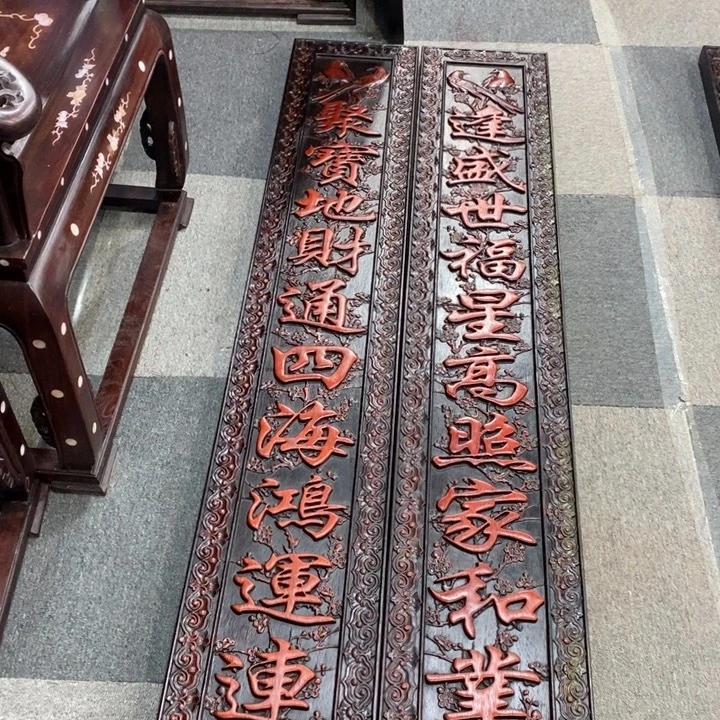 逢盛世福星高照家和業
聚寶地財通四海鴻運連